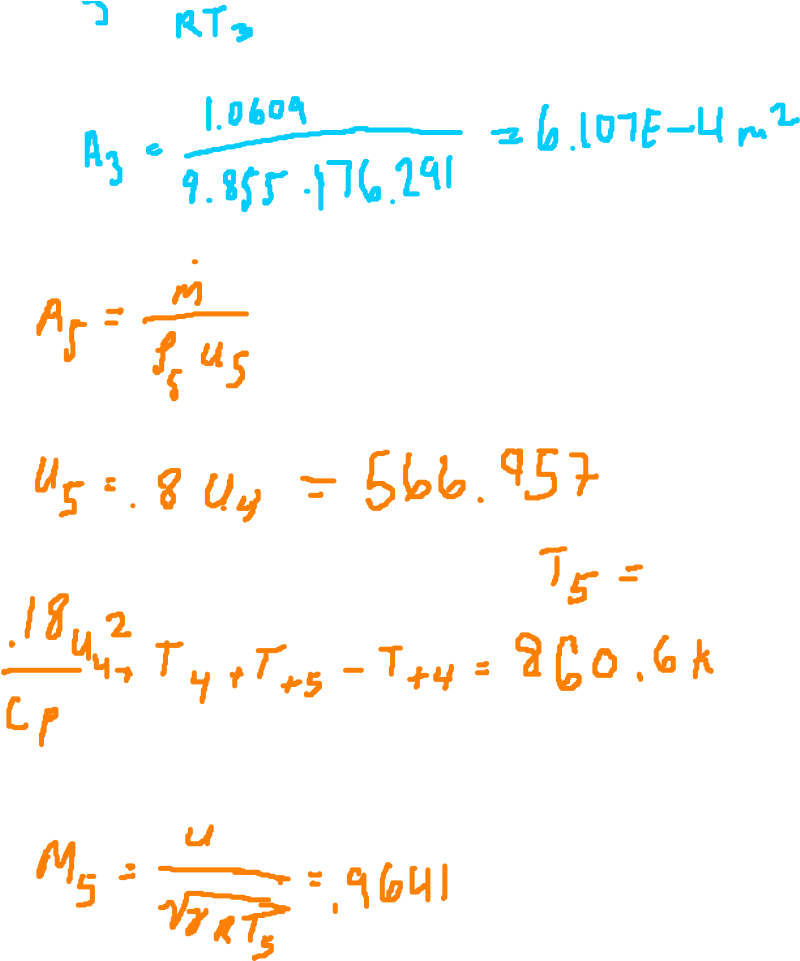 RT₃
A₃ = 1.0609 / (9.855 · 176.291) = 6.107E-4 m²
A₅ = ṁ / (ρ₅ u₅)
u₅ = .8 u₄ = 566.957
T₅ =
.18 u₄² / Cp + T₄ + T_t5 - T_t4 = 860.6 K
M₅ = u / √(γRT₅) = .9641